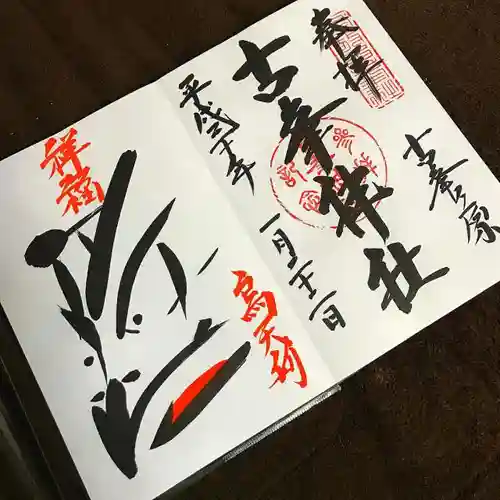 奉拝
古峯ヶ原
古峯神社
平成三十年
一月二十一日
祥福
烏天狗